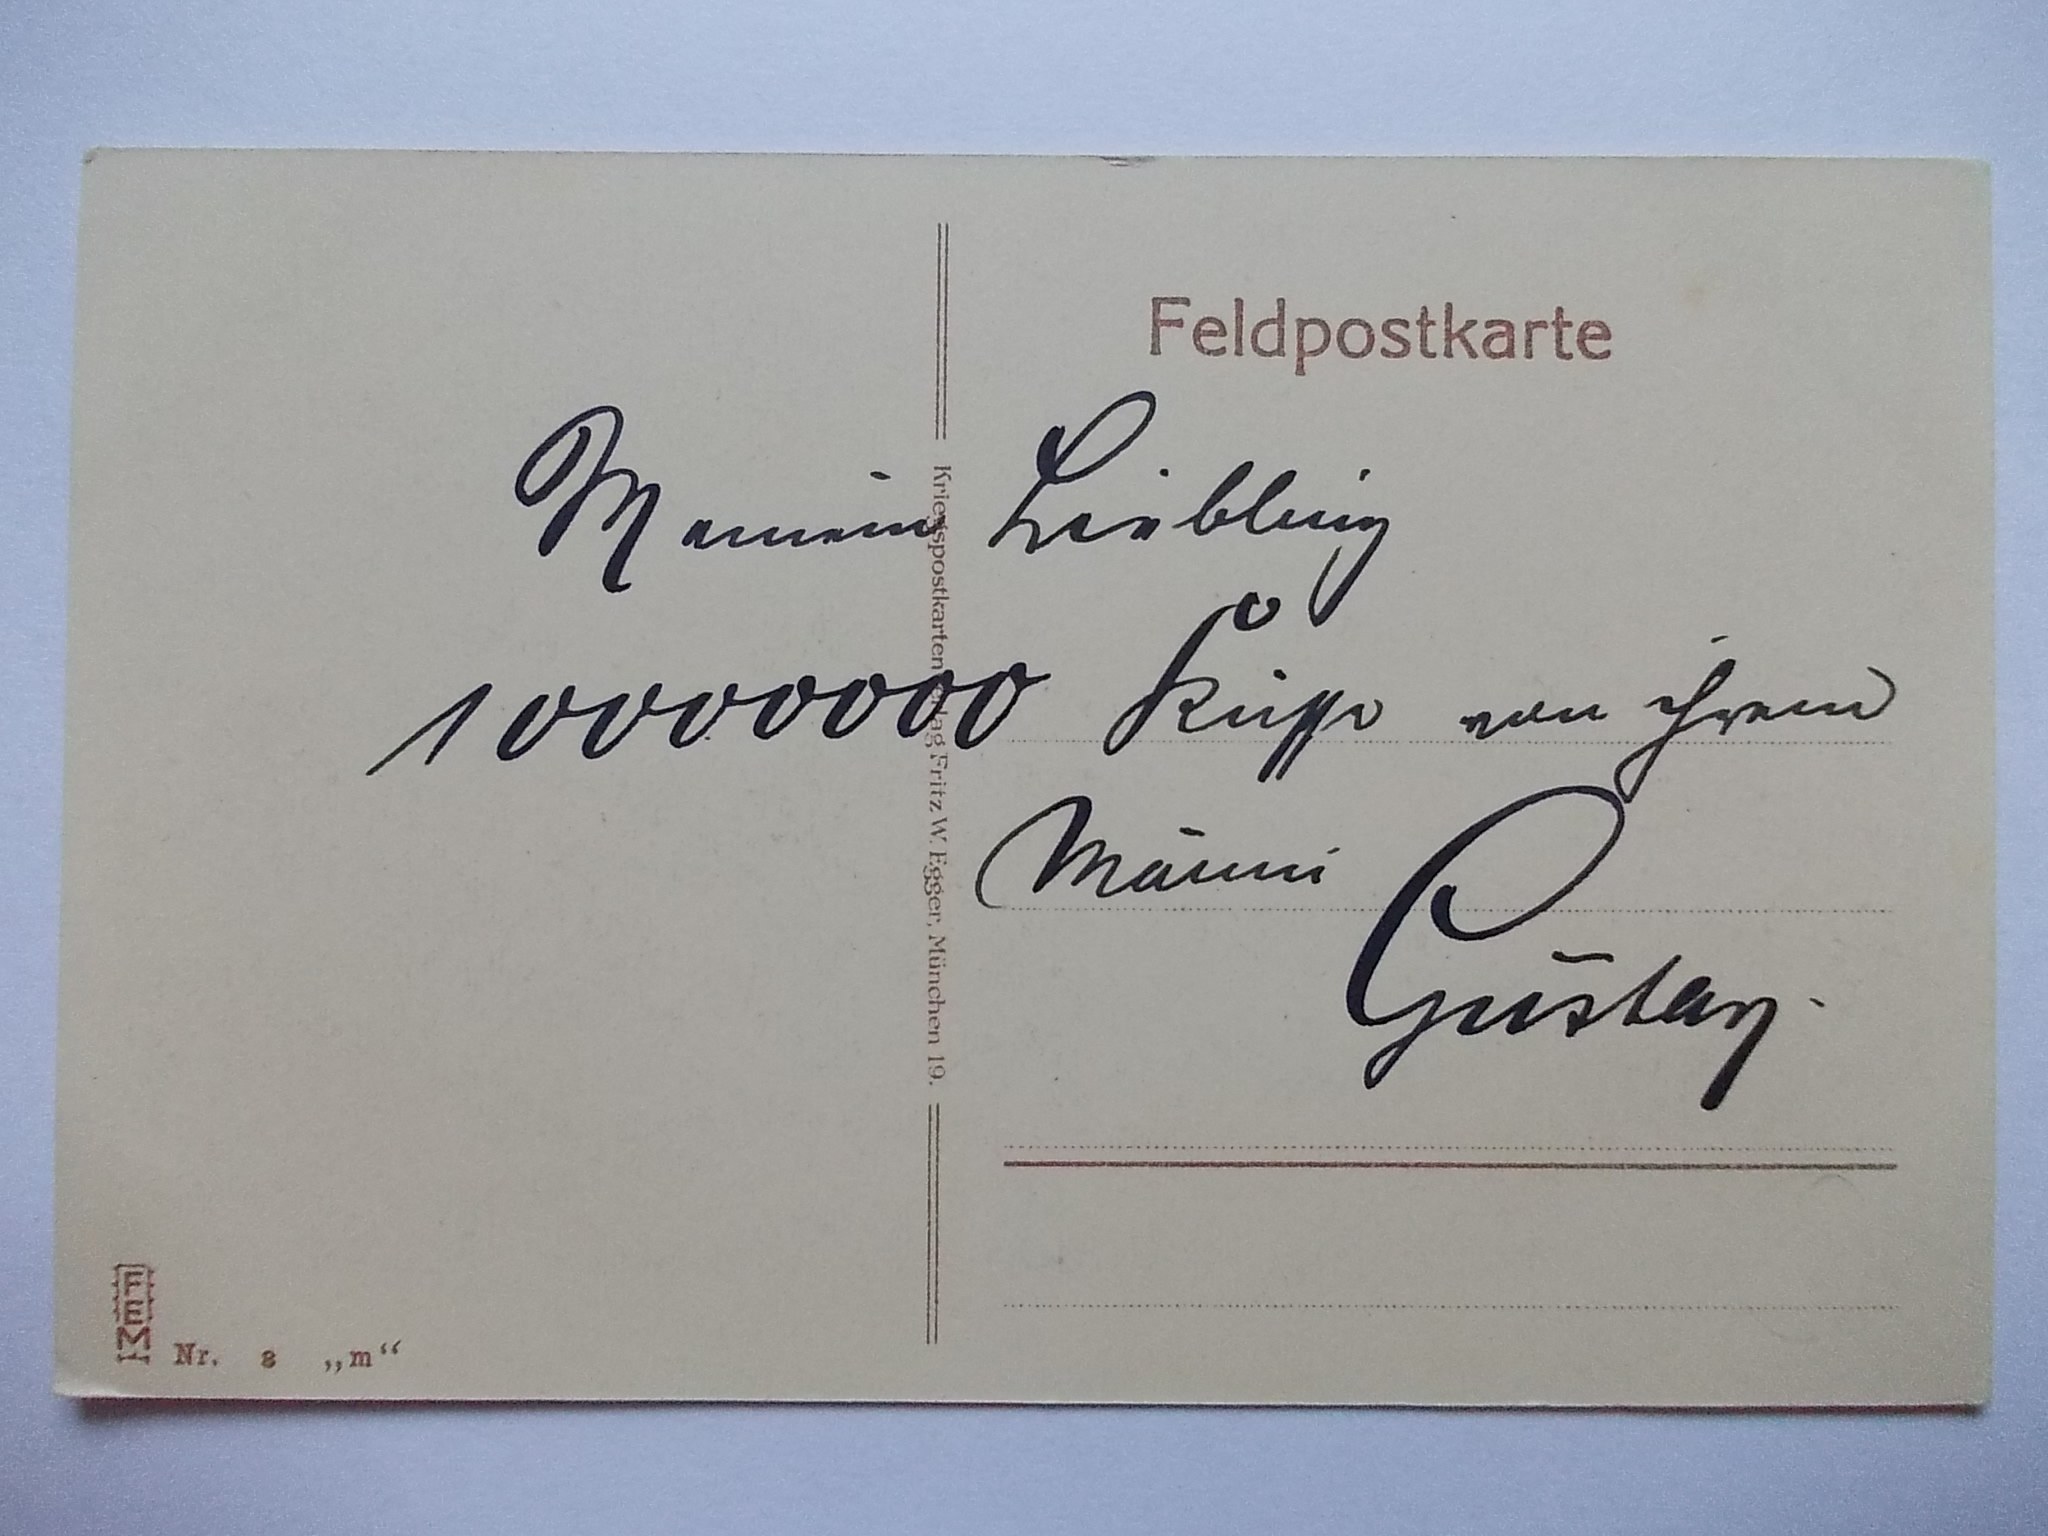 Feldpostkarte
Meinem Liebling
10000000 Küsse von ihrem
Männi
Gustav.
Kriegspostkarten-Verlag Fritz W. Egger, München 19.
FEM
Nr. 8 „m“